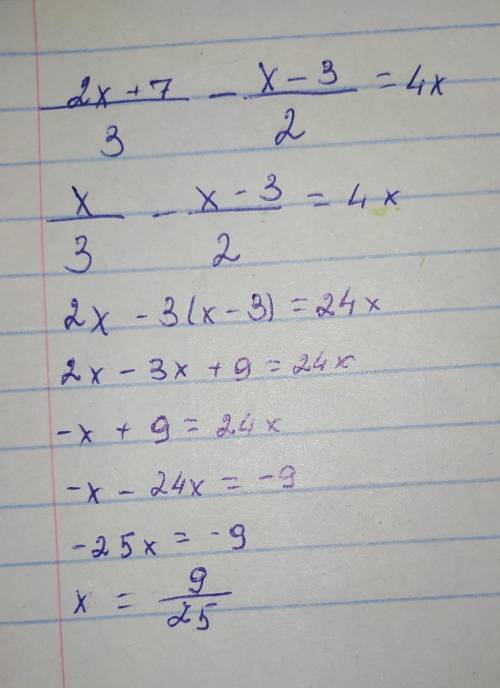 (2x + 7)/3 - (x - 3)/2 = 4x
x/3 - (x - 3)/2 = 4x
2x - 3(x - 3) = 24x
2x - 3x + 9 = 24x
-x + 9 = 24x
-x - 24x = -9
-25x = -9
x = 9/25